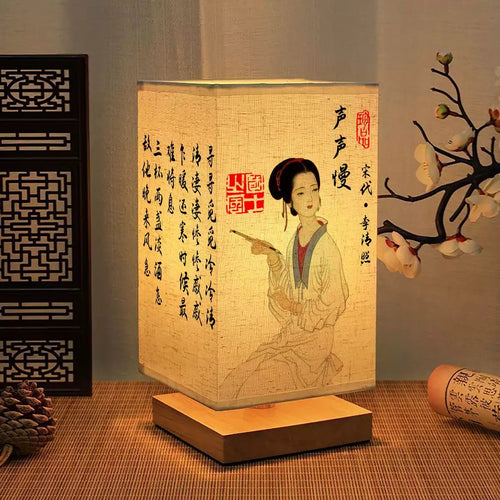 声声慢
宋代·李清照
寻寻觅觅冷冷清
清凄凄惨惨戚戚
乍暖还寒时候最
难将息
三杯两盏淡酒怎
敌他晚来风急